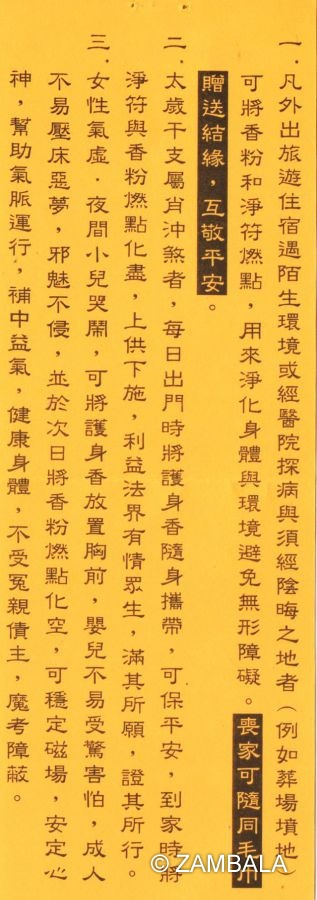 一．凡外出旅遊住宿遇陌生環境或經醫院探病與須經陰晦之地者（例如葬場墳地）
可將香粉和淨符燃點，用來淨化身體與環境避免無形障礙。喪家可隨同毛巾
贈送結緣，互敬平安。
二．太歲干支屬肖沖煞者，每日出門時將護身香隨身攜帶，可保平安，到家時將
淨符與香粉燃點化盡，上供下施，利益法界有情眾生，滿其所願，證其所行。
三．女性氣虛．夜間小兒哭鬧，可將護身香放置胸前，嬰兒不易受驚害怕，成人
不易壓床惡夢，邪魅不侵，並於次日將香粉燃點化空，可穩定磁場，安定心
神，幫助氣脈運行，補中益氣，健康身體，不受冤親債主，魔考障蔽。
© ZAMBALA